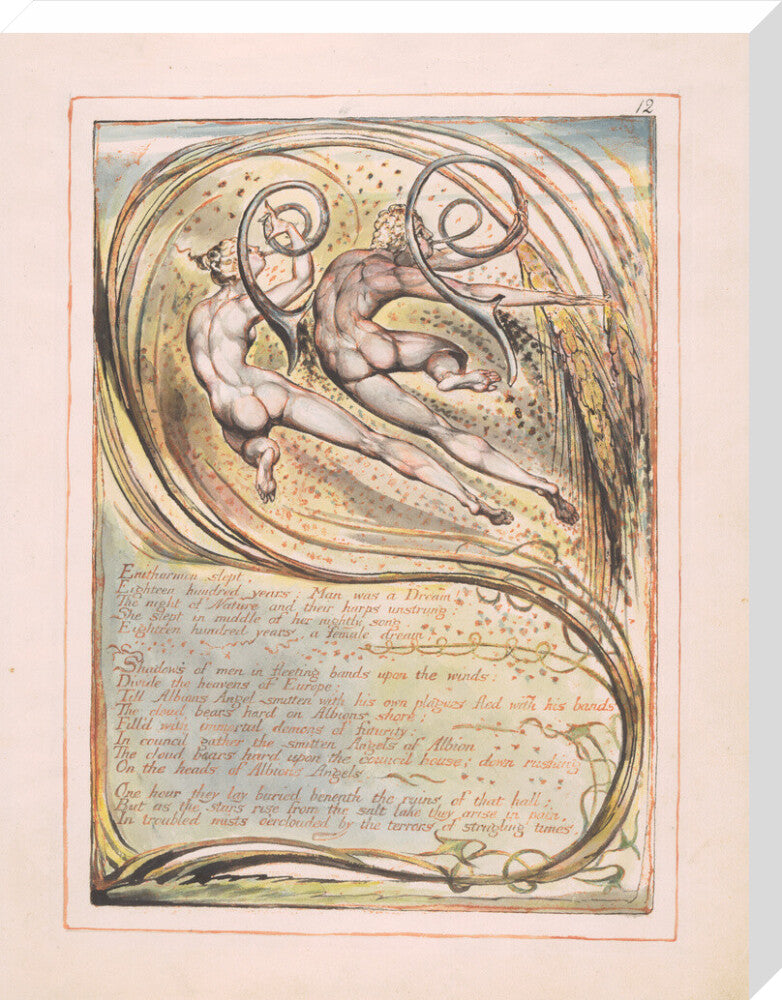 12
Enitharmon slept,
Eighteen hundred years: Man was a Dream!
The night of Nature and their harps unstrung
She slept in middle of her nightly song,
Eighteen hundred years, a female dream
Shadows of men in fleeting bands upon the winds:
Divide the heavens of Europe:
Till Albions Angel smitten with his own plagues fled with his bands
The cloud bears hard on Albions shore;
Fill'd with immortal demons of futurity:
In council gather the smitten Angels of Albion
The cloud bears hard upon the council house; down rushing
On the heads of Albions Angels.
One hour they lay buried beneath the ruins of that hall;
But as the stars rise from the salt lake they arise in pain,
In troubled mists oerclouded by the terrors of strugling times.